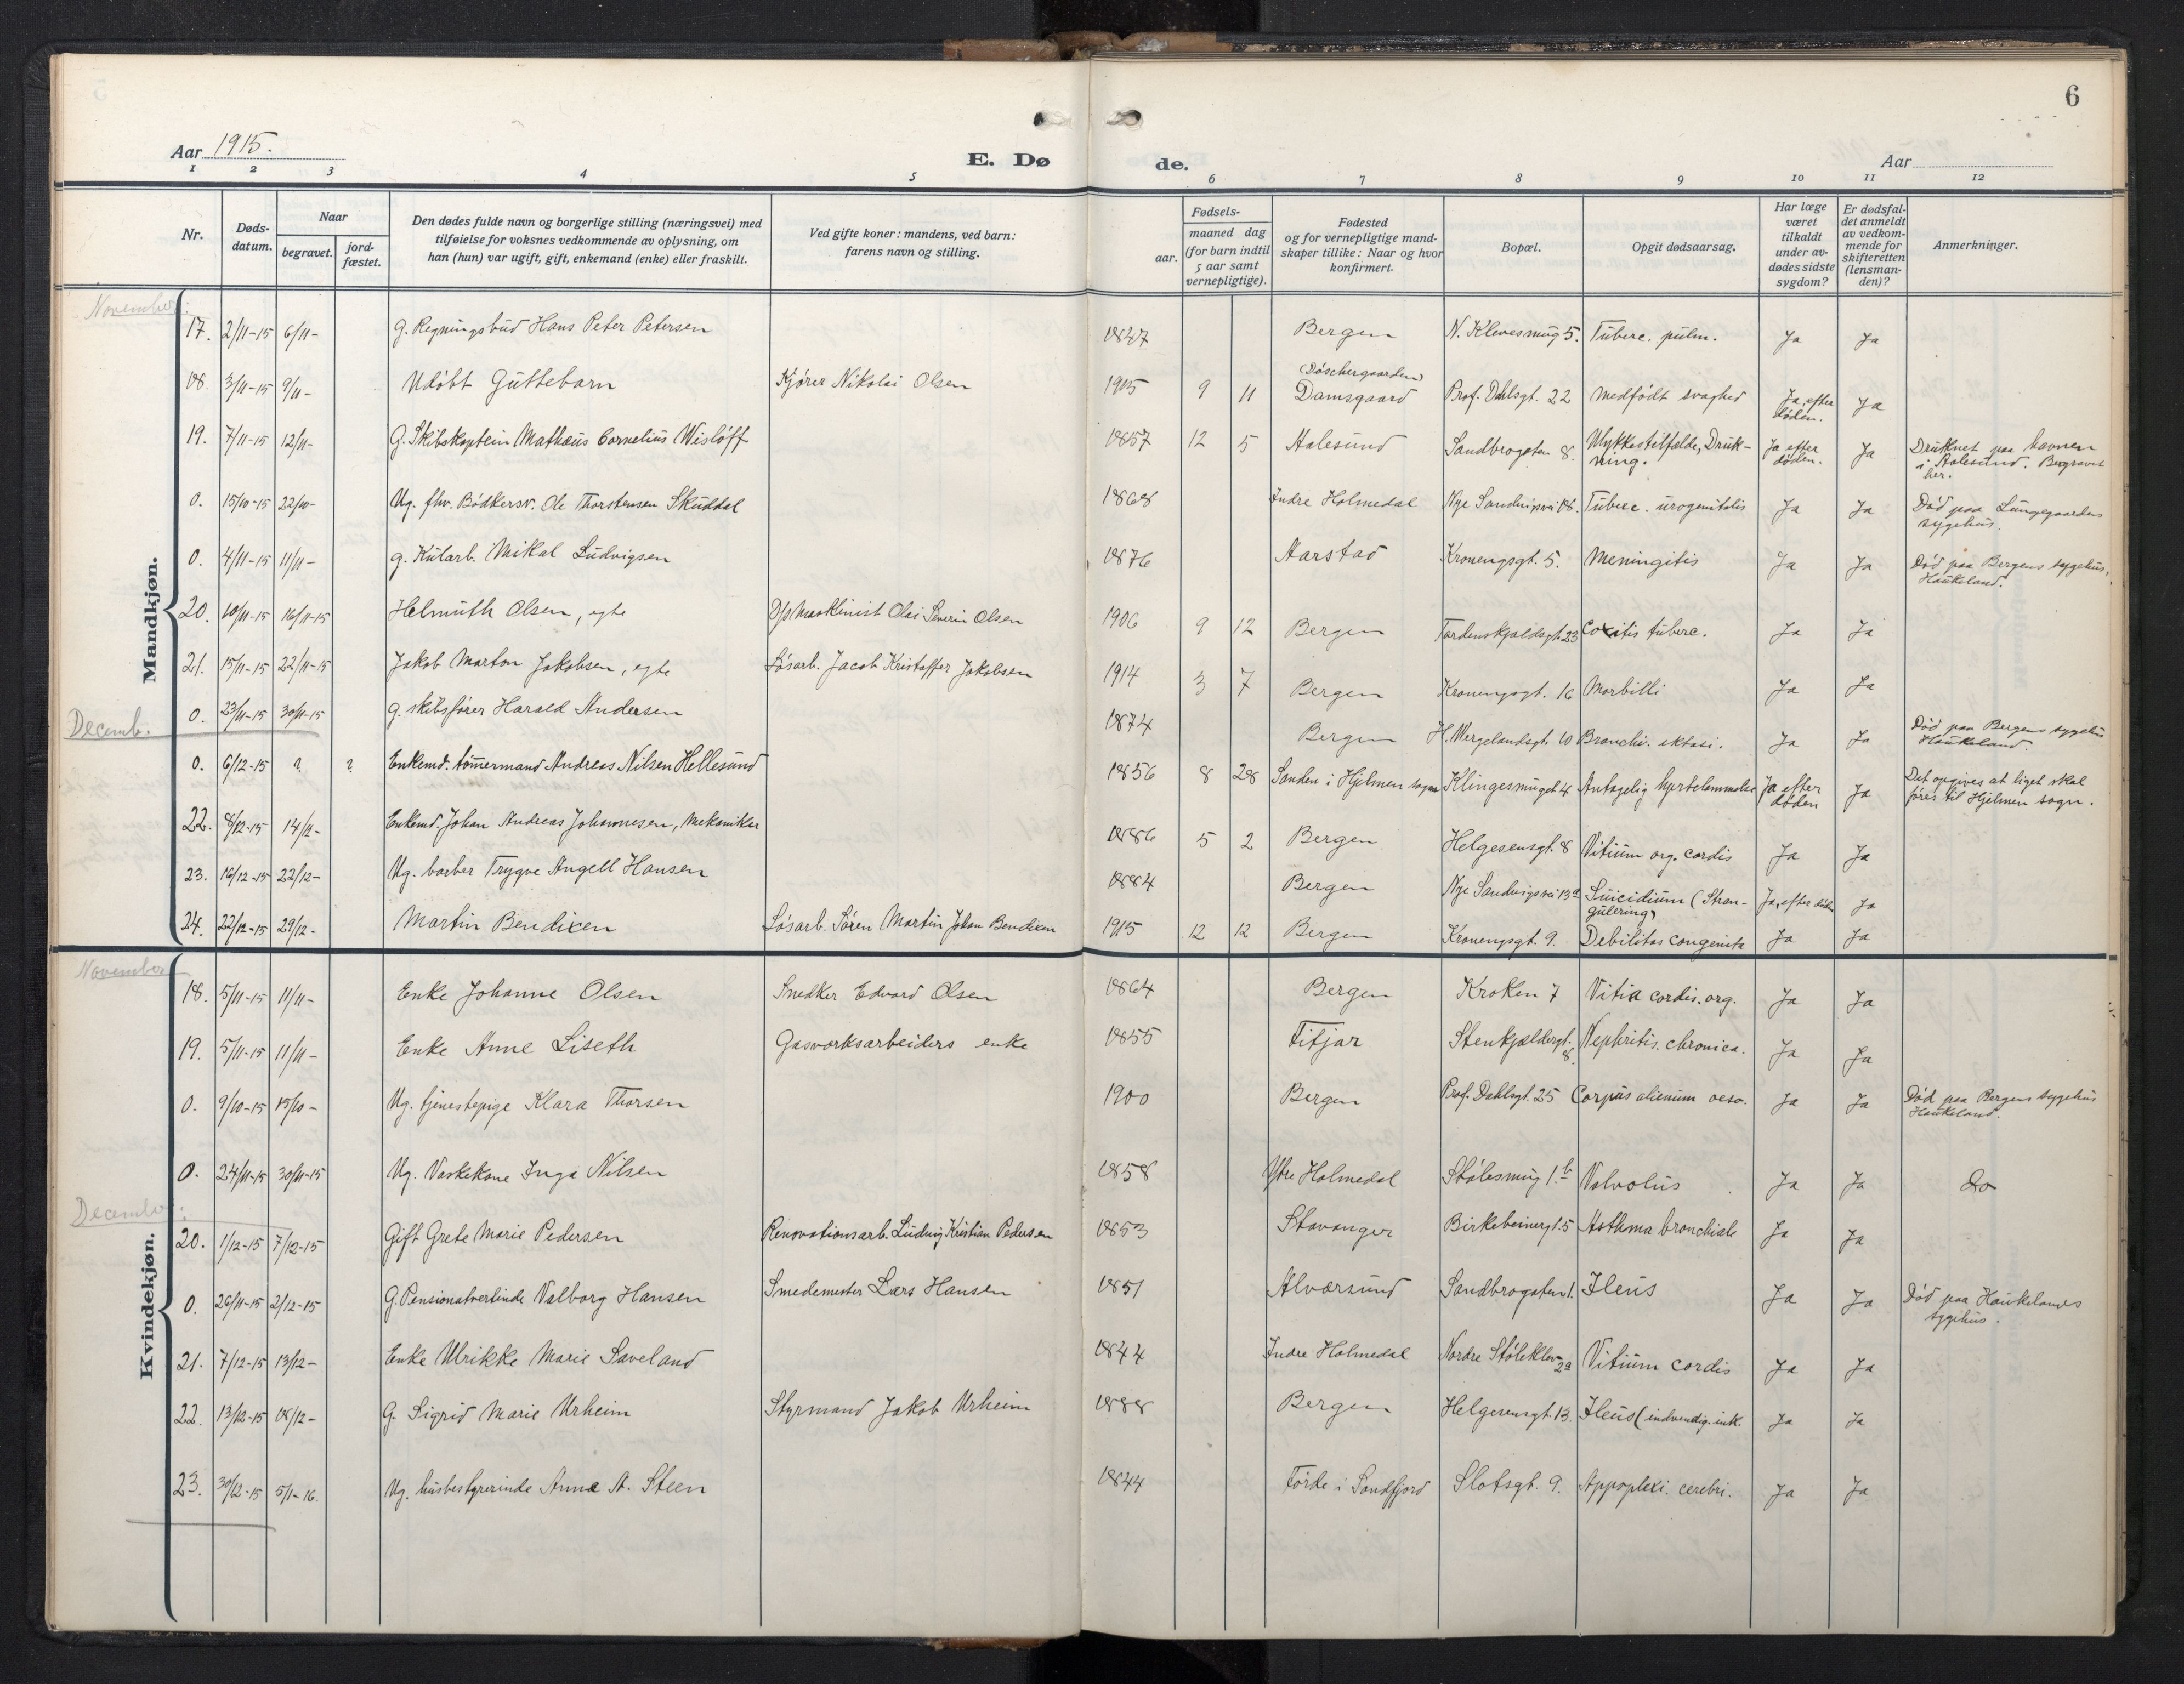 6
Aar 1915.
E. Dø
de.
Aar
1 2 3 4 5 6 7 8 9 10 11 12
Nr.
Døds-
datum.
Naar
begravet.
jord-
fæstet.
Den dødes fulde navn og borgerlige stilling (næringsvei) med
tilføielse for voksnes vedkommende av oplysning, om
han (hun) var ugift, gift, enkemand (enke) eller fraskilt.
Ved gifte koner: mandens, ved barn:
farens navn og stilling.
Fødsels-
aar.
maaned dag
(for barn indtil
5 aar samt
vernepligtige).
Fødested
og for vernepligtige mand-
skaper tillike: Naar og hvor
konfirmert.
Bopæl.
Opgit dødsaarsag.
Har læge
været
tilkaldt
under av-
dødes sidste
sygdom?
Er dødsfal-
det anmeldt
av vedkom-
mende for
skifteretten
(lensman-
den)?
Anmerkninger.
Mandkjøn.
November:
17. 2/11-15 6/11- G. Regningsbud Hans Peter Petersen 1847 Bergen N. Klevesmug 5. Tuberc. pulm. Ja Ja
18. 3/11-15 9/11- Udöbt Guttebarn Kjörer Nikolai Olsen 1915 9 11 (Döschergaarden) Damsgaard Prof. Dahlsgt. 22 Medfödt svaghed Ja, efter döden. Ja
19. 7/11-15 12/11- G. Skibskaptein Mathæus Cornelius Wislöff 1857 12 5 Aalesund Sandbrogaten 8. Ulykkestilfælde, Druk-ning. Ja efter döden. Ja Druknet paa havnen i Aalesund. Begravet her.
0. 15/10-15 22/10- Ug. fhv. Bödkersv. Ole Thorstensen Skuddal 1868 Indre Holmedal Nye Sandviksvei 18. Tuberc. urogenitalis Ja Ja Död paa Lungegaardens sygehus.
0. 4/11-15 11/11- g. Kularb. Mikal Ludvigsen 1876 Aarstad Kronengsgt. 5. Meningitis Ja Ja Död paa Bergens sygehus, Haukeland.
20. 10/11-15 16/11-15 Helmuth Olsen, egte D/s Maskinist Olai Severin Olsen 1906 9 12 Bergen Tordenskjoldsgt. 23 Coxitis tuberc. Ja Ja
21. 15/11-15 22/11-15 Jakob Marton Jakobsen, egte Løsarb. Jacob Kristoffer Jakobsen 1914 3 7 Bergen Kronengsgt. 16 Morbilli Ja Ja
0. 23/11-15 30/11-15 g. skibsfører Harald Andersen 1874 Bergen H. Wergelandsgt. 10 Bronchi. ektasi. Ja Ja Död paa Bergens sygehus Haukeland
Decemb.
0. 6/12-15 ? ? Enkemd. tömmermand Andreas Nilsen Hellesund 1856 8 28 Sanden i Hjelmen sogn Klingesmuget 4 Antagelig hjertelammelse Ja efter döden Ja Det opgives at liget skal föres til Hjelmen sogn.
22. 8/12-15 14/12- Enkemd. Johan Andreas Johannesen, Mekaniker 1886 5 2 Bergen Helgesensgt. 8 Vitium org. cordis Ja Ja
23. 16/12-15 22/12- Ug. barber Trygve Angell Hansen 1884 Bergen Nye Sandvigsvei 13a Suicidium (Stran-gulering) Ja, efter döden Ja
24. 22/12-15 29/12- Martin Bendixen Løsarb. Sören Martin Johan Bendixen 1915 12 12 Bergen Kronengsgt. 9. Debilitas congenita Ja Ja
Kvindekjøn.
November
18. 5/11-15 11/11- Enke Johanne Olsen Snedker Edvard Olsen 1864 Bergen Kroken 7 Vitia cordis. org. Ja Ja
19. 5/11-15 11/11- Enke Anne Liseth Gasverksarbeiders enke 1855 Fitjar Stenkjeldergt. 8. Nephritis. chronica. Ja Ja
0. 9/10-15 15/10- Ug. tjenestepige Klara Thorsen 1900 Bergen Prof. Dahlsgt. 25 Corpus alienum oeso. Ja Ja Död paa Bergens sygehus Haukeland.
0. 24/11-15 30/11-15 Ug. Vaskekone Inga Nilsen 1858 Ytre Holmedal Stölesmug 1.b Volvolus Ja Ja Do
December:
20. 1/12-15 7/12-15 Gift Grete Marie Pedersen Renovationsarb. Ludvig Kristian Pedersen 1853 Stavanger Birkebeinergt. 5 Asthma bronchiale Ja Ja
0. 26/11-15 2/12-15 G. Pensionatvertinde Valborg Hansen Smedemester Lars Hansen 1851 Alværsund Sandbrogaten 1. Ileus Ja Ja Död paa Haukelands sygehus.
21. 7/12-15 13/12- Enke Ulrikke Marie Saveland 1844 Indre Holmedal Nordre Stölekleven 2a Vitium cordis Ja Ja
22. 13/12-15 18/12- G. Sigrid Marie Urheim Styrmand Jakob Urheim 1888 Bergen Helgesensgt. 13. Ileus (indvendig. ink. Ja Ja
23. 30/12-15 5/1-16. Ug. husbestyrerinde Anna A. Steen 1844 Förde i Sondfjord Slotsgt. 9. Appoplexi. cerebri. Ja Ja